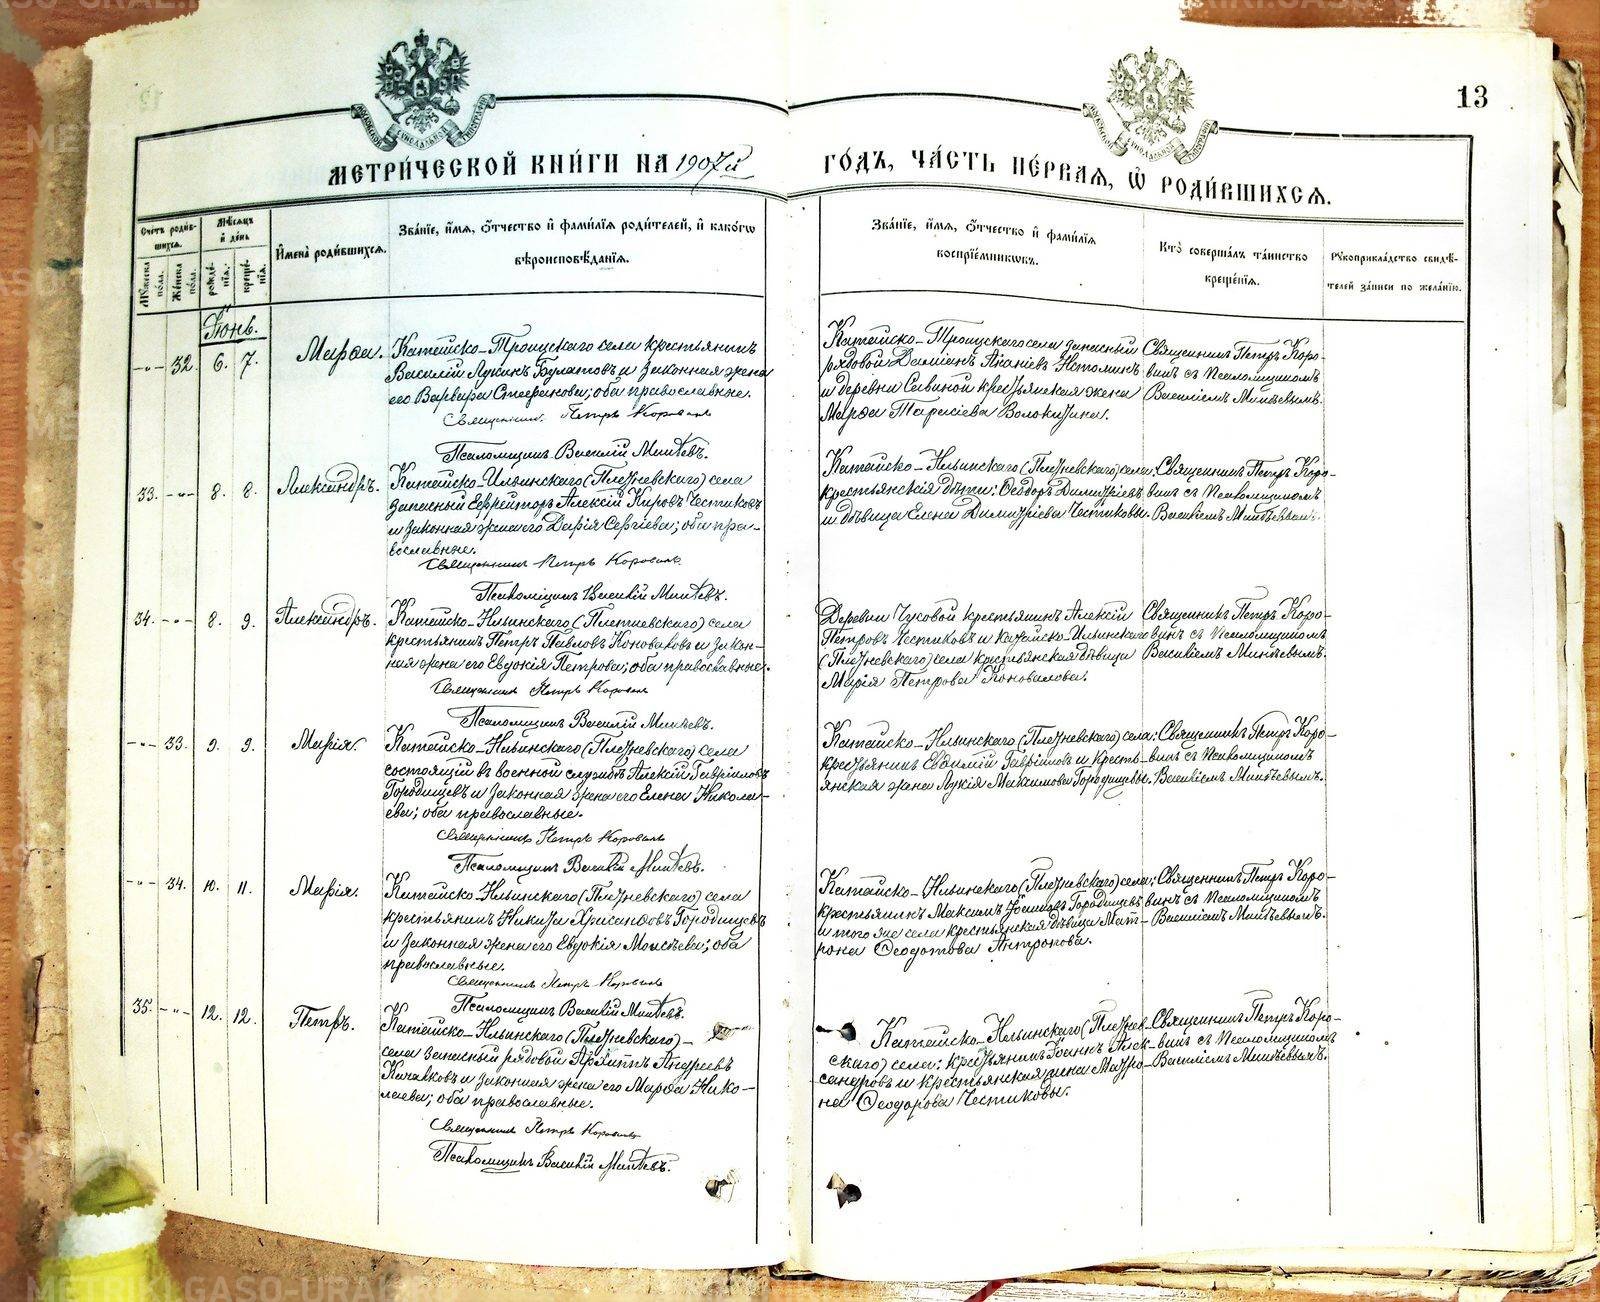 13
МЕТРИ́ЧЕСКОЙ КНИ́ГИ НА 1907й
ГО́ДЪ, ЧА́СТЬ ПЕ́РВАЯ, Ѽ РОДИ́ВШИХСЯ.
Счетъ роди́вшихся.
Мꙋжеска по́ла.
Же́нска по́ла.
Мѣ́сяцъ и҆ де́нь
рожде́нїя.
креще́нїя.
И҆мена̀ роди́вшихся.
Зва́нїе, и҆́мя, ѻ҆́тчество и҆ фами́лїя роди́телей, и҆ како́гѡ
вѣроисповѣ́данїя.
Зва́нїе, и҆́мя, ѻ҆́тчество и҆ фами́лїя
воспрїе́мникѡвъ.
Кто̀ соверша́лъ та́инство
креще́нїя.
Рꙋкоприкла́дство свидѣ́-
телей за́писи по жела́нїю.
Іюнь.
-"- 32. 6. 7.
Марѳа.
Катайско-Троицкаго села крестьянинъ
Василій Лукинъ Булатовъ и законная жена
его Варвара Стефанова; оба православные.
Священникъ Петръ Коровинъ
Псаломщикъ Василій Минѣевъ.
Катайско-Троицкаго села запасный
рядовой Даміанъ Ананіевъ Истоминъ
и деревни Савиной крестьянская жена
Марѳа Тарасіева Волокитина.
Священникъ Петръ Коро-
винъ с псаломщикомъ
Василіемъ Минѣевымъ.
33. -"- 8. 8.
Александръ.
Катайско-Ильинскаго (Плетневскаго) села
запасный ефрейторъ Алексій Кировъ Честиковъ
и законная жена его Дарія Сергіева; оба пра-
вославные.
Священникъ Петръ Коровинъ
Псаломщикъ Василій Минѣевъ.
Катайско-Ильинскаго (Плетневскаго) села:
крестьянскія дѣти: Ѳеодоръ Димитріевъ
и дѣвица Елена Димитріева Честиковы.
Священникъ Петръ Коро-
винъ с псаломщикомъ
Василіемъ Минѣевымъ.
34. -"- 8. 9.
Александръ.
Катайско-Ильинскаго (Плетневскаго) села
крестьянинъ Петръ Павловъ Коноваловъ и закон-
ная жена его Евдокія Петрова; оба православные.
Священникъ Петръ Коровинъ
Псаломщикъ Василій Минѣевъ.
Деревни Чусовой крестьянинъ Алексій
Петровъ Честиковъ и Катайско-Ильинскаго
(Плетневскаго) села крестьянская дѣвица
Марія Петрова Коновалова.
Священникъ Петръ Коро-
винъ с псаломщикомъ
Василіемъ Минѣевымъ.
-"- 33. 9. 9.
Марія.
Катайско-Ильинскаго (Плетневскаго) села
состоящій въ военной службѣ Алексій Гавріиловъ
Городищевъ и законная жена его Елена Никола-
ева; оба православные.
Священникъ Петръ Коровинъ
Псаломщикъ Василій Минѣевъ.
Катайско-Ильинскаго (Плетневскаго) села:
крестьянинъ Евдимій Гавріиловъ и кресть-
янская жена Лукія Максимова Городищевы.
Священникъ Петръ Коро-
винъ с псаломщикомъ
Василіемъ Минѣевымъ.
-"- 34. 10. 11.
Марія.
Катайско-Ильинскаго (Плетневскаго) села
крестьянинъ Никита Хрисанѳовъ Городищевъ
и законная жена его Евдокія Моисѣева; оба
православные.
Священникъ Петръ Коровинъ
Псаломщикъ Василій Минѣевъ.
Катайско-Ильинскаго (Плетневскаго) села:
крестьянинъ Максимъ Іосифовъ Городищевъ
и того же села крестьянская дѣвица Мат-
рона Ѳеодотова Антропова.
Священникъ Петръ Коро-
винъ с псаломщикомъ
Василіемъ Минѣевымъ.
35. -"- 12. 12.
Петръ.
Катайско-Ильинскаго (Плетневскаго)-
села запасный рядовой Архиппъ Андреевъ
Качалковъ и законная жена его Марѳа Нико-
лаева; оба православные.
Священникъ Петръ Коровинъ
Псаломщикъ Василій Минѣевъ.
Катайско-Ильинскаго (Плетнев-
скаго) села: крестьянинъ Іоаннъ Алек-
сандровъ и крестьянская жена Мавро-
на Ѳеодорова Честиковы.
Священникъ Петръ Коро-
винъ с псаломщикомъ
Василіемъ Минѣевымъ.